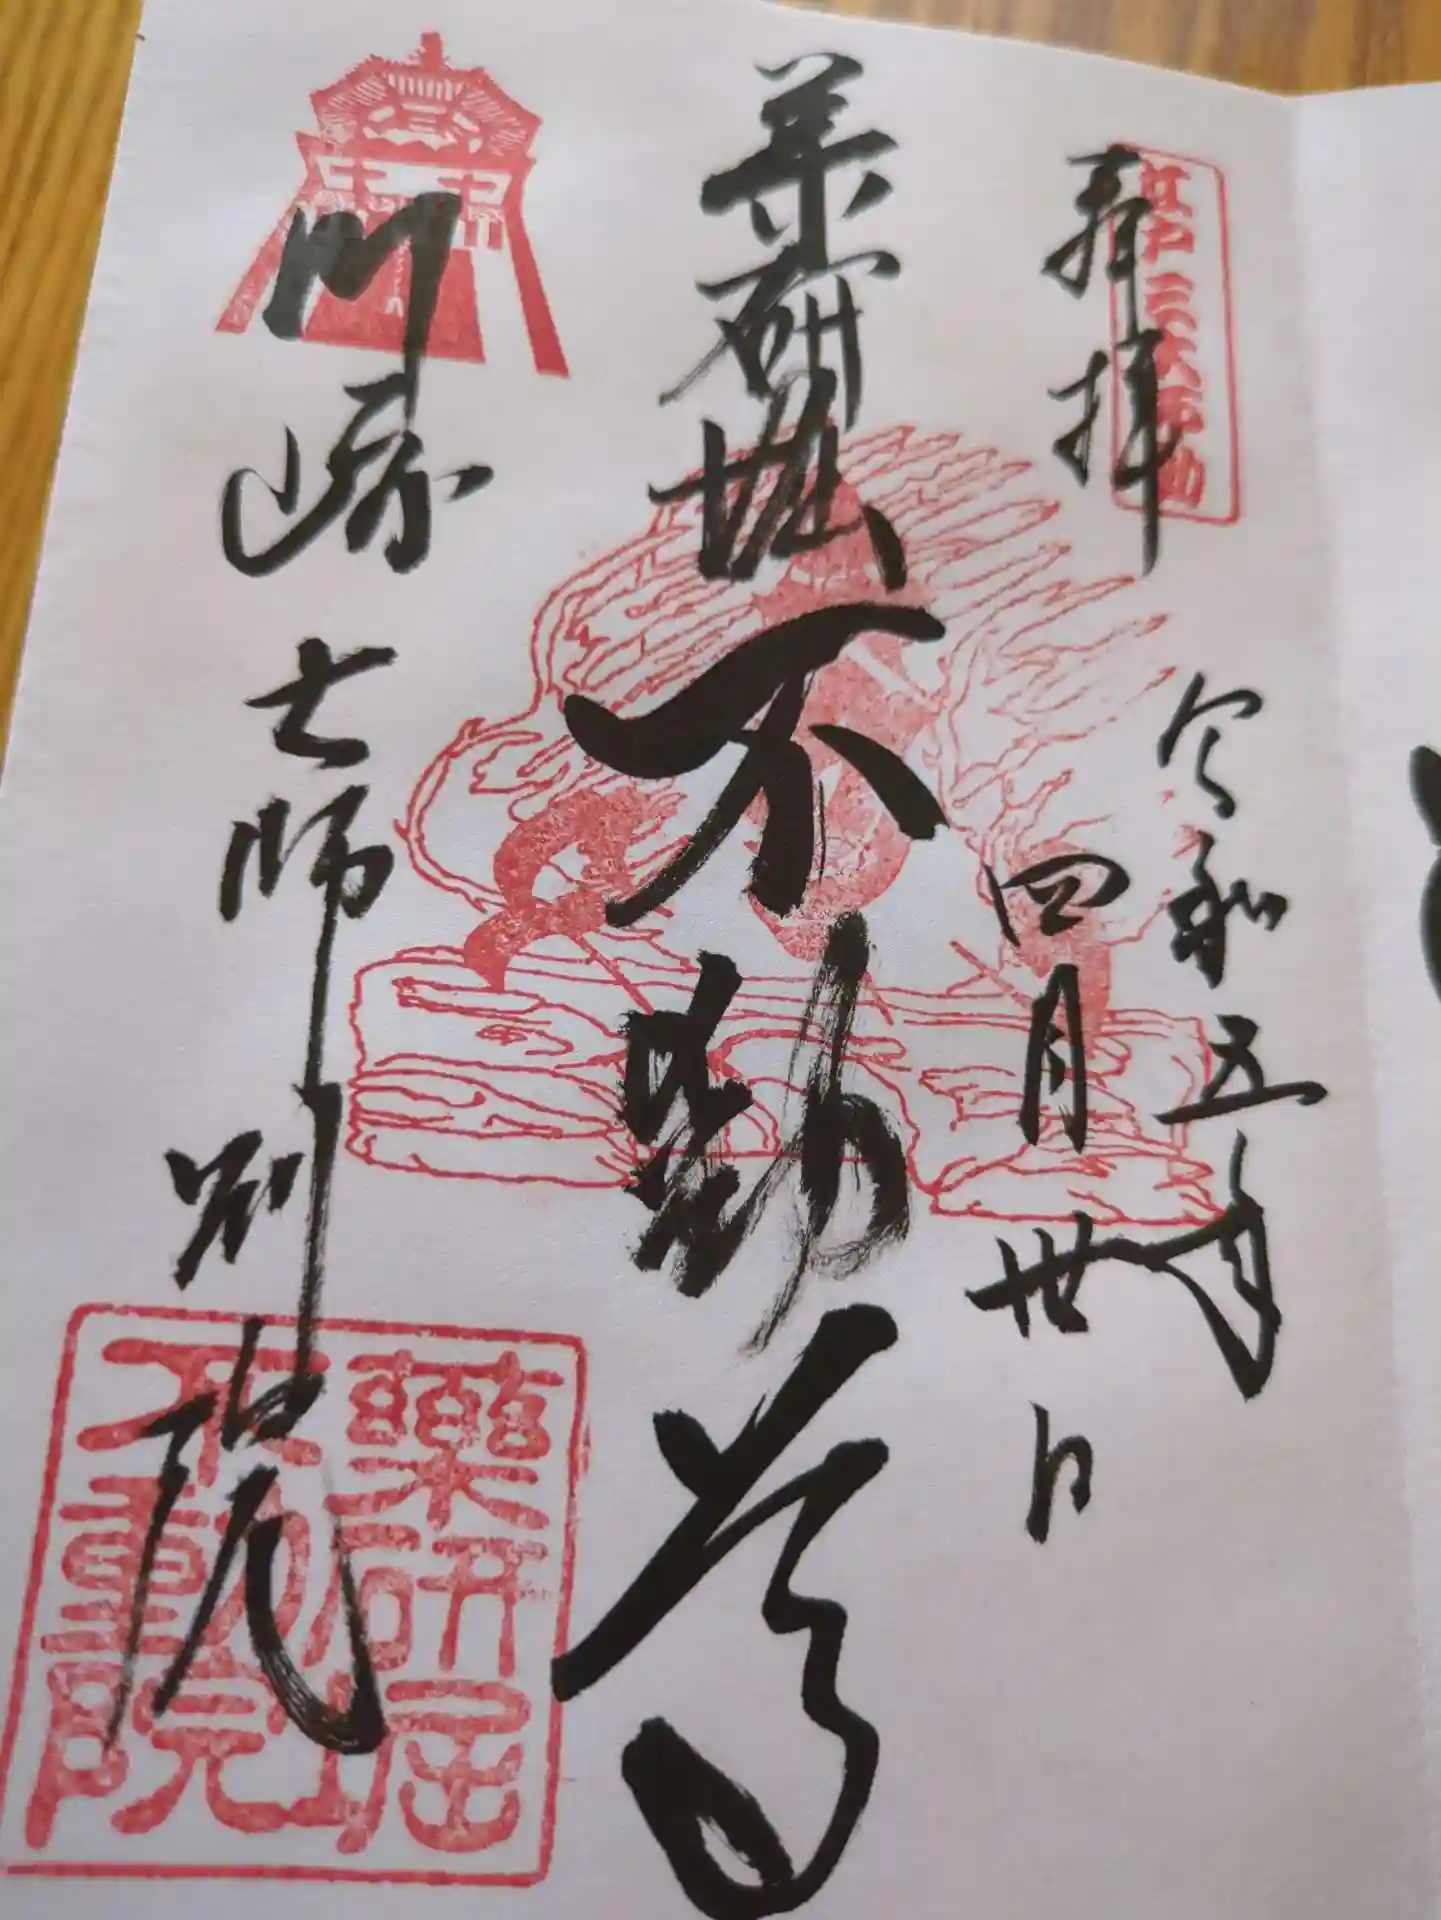 江戸三大不動
奉拝
令和五年
四月廿日
薬研堀不動尊
川崎大師別院
薬研堀
不動院